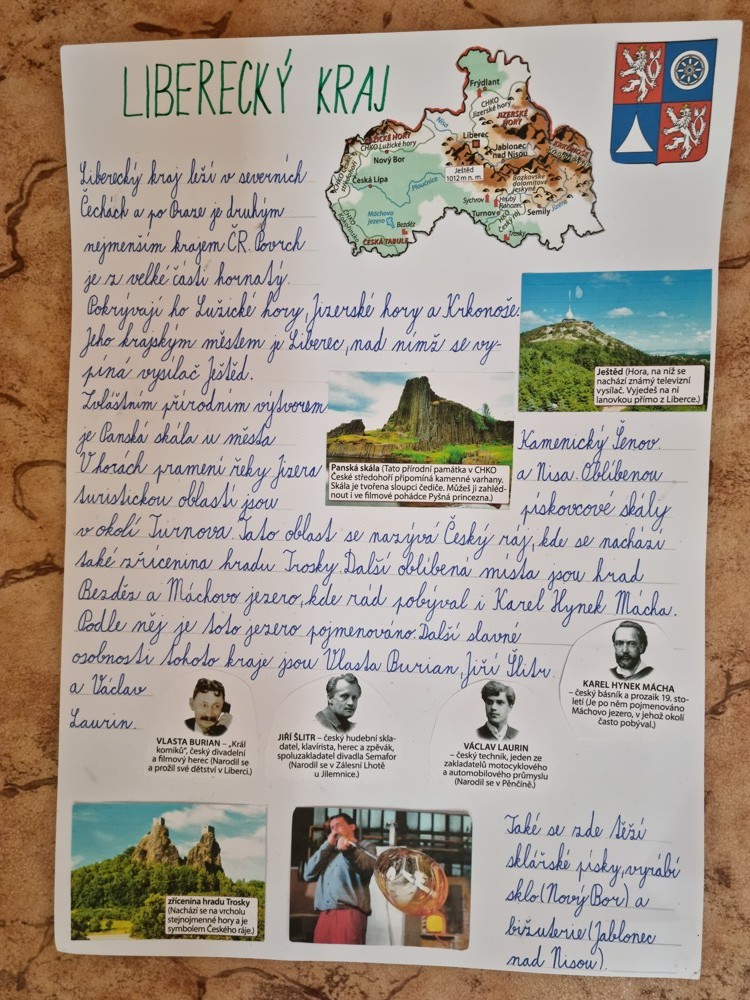 LIBERECKÝ KRAJ
Frýdlant
CHKO
Jizerské hory
JIZERSKÉ
HORY
Nisa
LUŽICKÉ HORY
CHKO Lužické hory
Liberec
Jablonec
nad Nisou
KRKONOŠE
Nový Bor
Ještěd
1012 m n. m.
Česká Lípa
Ploučnice
Bozkovské
dolomitové
jeskyně
Sychrov
Hrubý
Rohozec
Turnov
Semily
Jizera
Máchovo
jezero
Bezděz
ČESKÁ TABULE
CHKO
Český ráj
Trosky
Liberecký kraj leží v severních
Čechách a po Praze je druhým
nejmenším krajem ČR. Povrch
je z velké části hornatý.
Pokrývají ho Lužické hory, Jizerské hory a Krkonoše.
Jeho krajským městem je Liberec, nad nímž se vy-
píná vysílač Ještěd.
Ještěd (Hora, na níž se
nachází známý televizní
vysílač. Vyjedeš na ni
lanovkou přímo z Liberce.)
Zvláštním přírodním výtvorem
je Panská skála u města Kamenický Šenov.
Panská skála (Tato přírodní památka v CHKO
České středohoří připomíná kamenné varhany.
Skála je tvořena sloupci čediče. Můžeš ji zahléd-
nout i ve filmové pohádce Pyšná princezna.)
V horách pramení řeky Jizera a Nisa. Oblíbenou
turistickou oblastí jsou pískovcové skály
v okolí Turnova. Tato oblast se nazývá Český ráj, kde se nachází
také zřícenina hradu Trosky. Další oblíbená místa jsou hrad
Bezděz a Máchovo jezero, kde rád pobýval i Karel Hynek Mácha.
Podle něj je toto jezero pojmenováno. Další slavné
osobnosti tohoto kraje jsou Vlasta Burian, Jiří Šlitr
a Václav
Laurin.
KAREL HYNEK MÁCHA
– český básník a prozaik 19. sto-
letí (Je po něm pojmenováno
Máchovo jezero, v jehož okolí
často pobýval.)
VLASTA BURIAN – „Král
komiků“, český divadelní
a filmový herec (Narodil se
a prožil své dětství v Liberci.)
JIŘÍ ŠLITR – český hudební skla-
datel, klavírista, herec a zpěvák,
spoluzakladatel divadla Semafor
(Narodil se v Zálesní Lhotě
u Jilemnice.)
VÁCLAV LAURIN
– český technik, jeden ze
zakladatelů motocyklového
a automobilového průmyslu
(Narodil se v Pěnčíně.)
zřícenina hradu Trosky
(Nachází se na vrcholu
stejnojmenné hory a je
symbolem Českého ráje.)
Také se zde těží
sklářské písky, vyrábí
sklo (Nový Bor) a
bižuterie (Jablonec
nad Nisou).